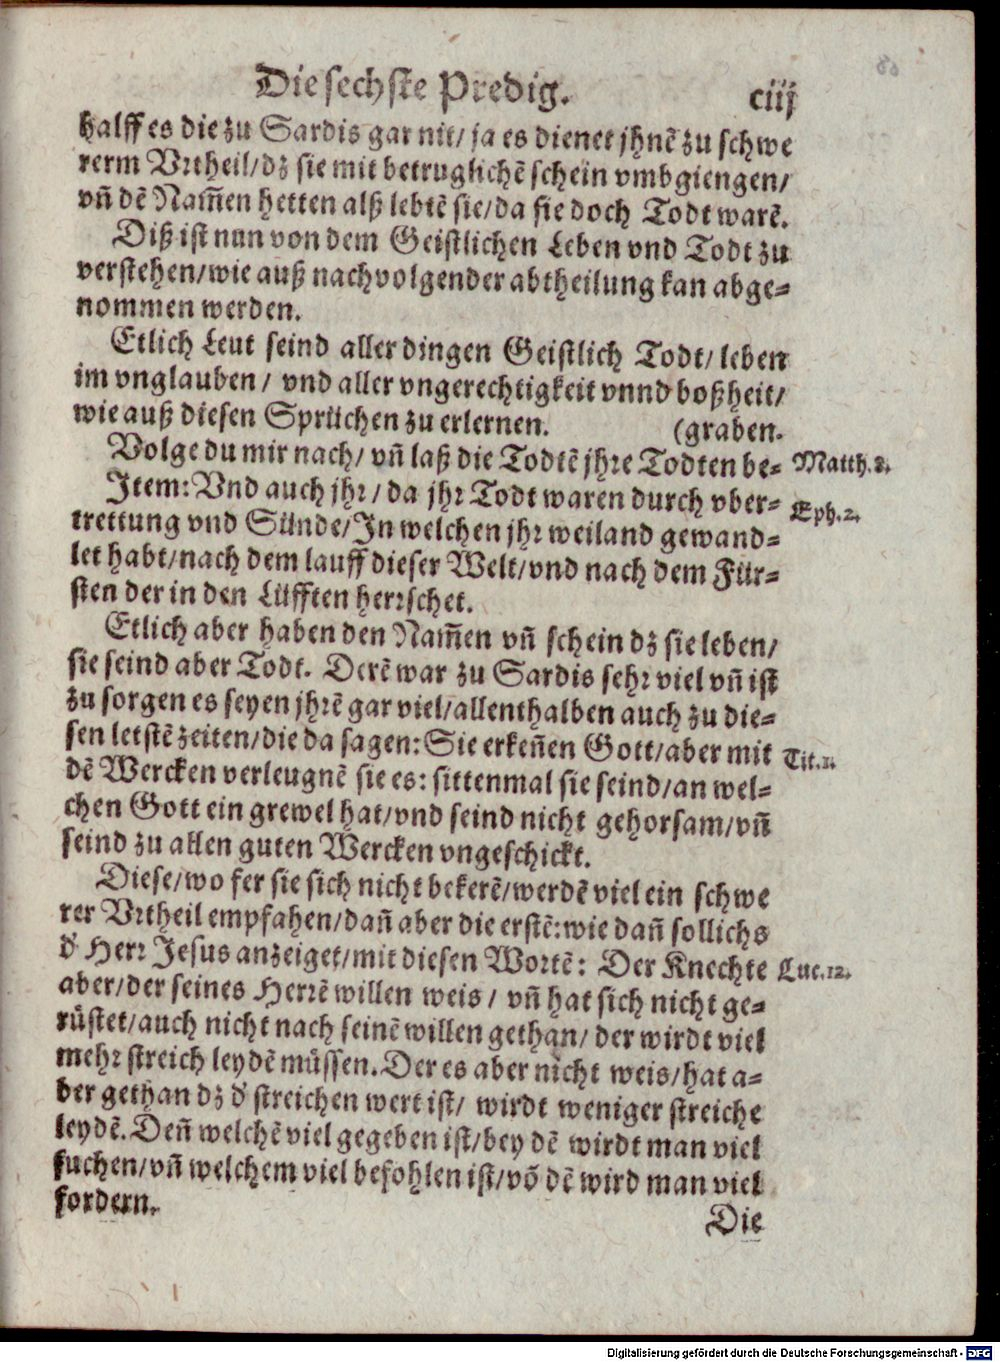 Die sechste Predig. ciij
halff es die zu Sardis gar nit/ ja es dienet jhnē zu schwe
rerm Vrtheil/dz sie mit betruglichē schein vmbgiengen/
vñ dē Nam̃en hetten alß lebtē sie/da sie doch Todt warē.
Diß ist nun von dem Geistlichen Leben vnd Todt zu
verstehen/wie auß nachvolgender abtheilung kan abge=
nommen werden.
Etlich Leut seind aller dingen Geistlich Todt/ leben
im vnglauben/ vnd aller vngerechtigkeit vnnd boßheit/
wie auß diesen Sprüchen zu erlernen. (graben.
Volge du mir nach/ vñ laß die Todtē jhre Todten be= Matth.8.
Item: Vnd auch jhr/ da jhr Todt waren durch vber= Eph.2.
trettung vnd Sünde/In welchen jhr weiland gewand=
let habt/nach dem lauff dieser Welt/vnd nach dem Für=
sten der in den Lüfften herrschet.
Etlich aber haben den Nam̃en vñ schein dz sie leben/
sie seind aber Todt. Derē war zu Sardis sehr viel vñ ist
zu sorgen es seyen jhrē gar viel/allenthalben auch zu die=
sen letstē zeiten/die da sagen: Sie erkeñen Gott/aber mit Tit.1.
dē Wercken verleugnē sie es: sittenmal sie seind/an wel=
chen Gott ein grewel hat/vnd seind nicht gehorsam/vñ
seind zu allen guten Wercken vngeschickt.
Diese/wo fer sie sich nicht bekerē/werdē viel ein schwe
rer Vrtheil empfahen/dañ aber die erstē: wie dañ sollichs
d' Herr Jesus anzeiget/mit diesen Wortē: Der Knechte Luc.12.
aber/der seines Herrē willen weis/ vñ hat sich nicht ge=
rüstet/auch nicht nach seinē willen gethan/ der wirdt viel
mehr streich leydē müssen. Der es aber nicht weis/hat a=
ber gethan dz d' streichen wert ist/ wirdt weniger streiche
leydē. Deñ welchē viel gegeben ist/bey dē wirdt man viel
suchen/vñ welchem viel befohlen ist/võ dē wird man viel
fordern.
Die
Digitalisierung gefördert durch die Deutsche Forschungsgemeinschaft - DFG